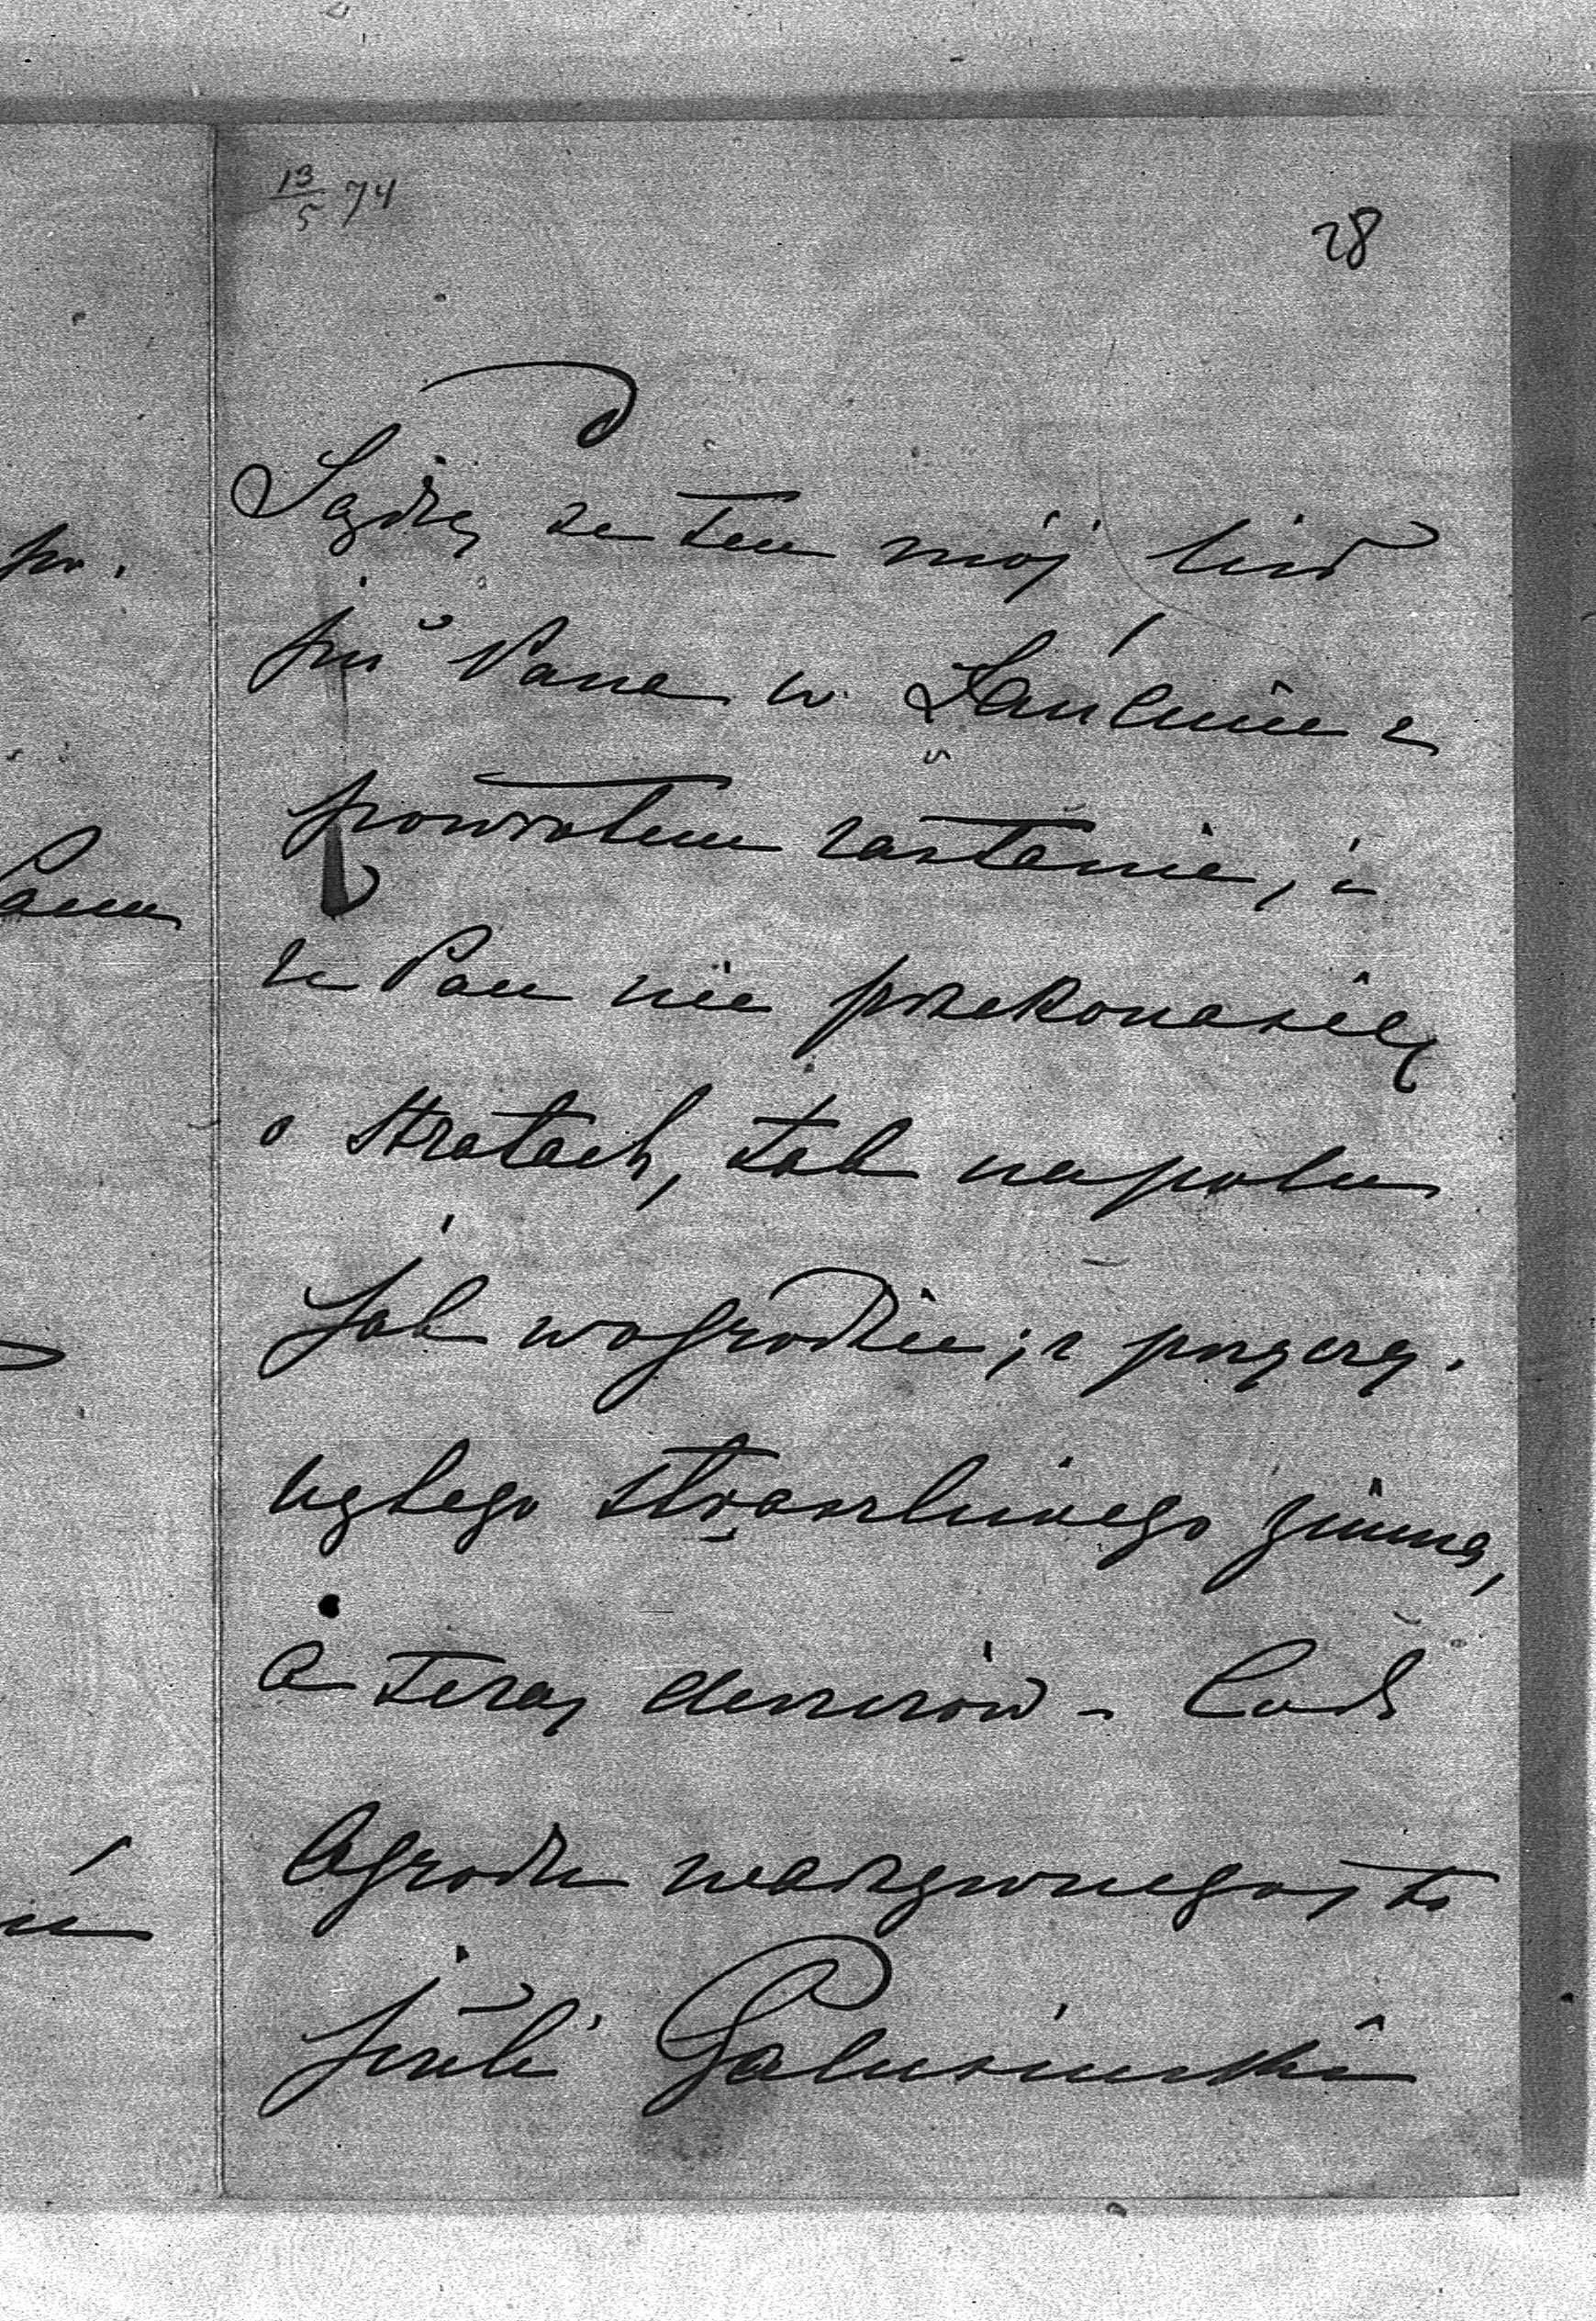 13/5 74
28
Sądzę ze ten mój list
już Pana w Łańcucie z
powrotem zastanie, i
ze Pan nie przekona się
o stratach, tak na polu
jak w ogrodzie; z przyczy.
ny tego straszliwego zimna,
a teraz deszczów - Co do
Ogrodu warzywnego, to
jeźeli
pr.
Pana